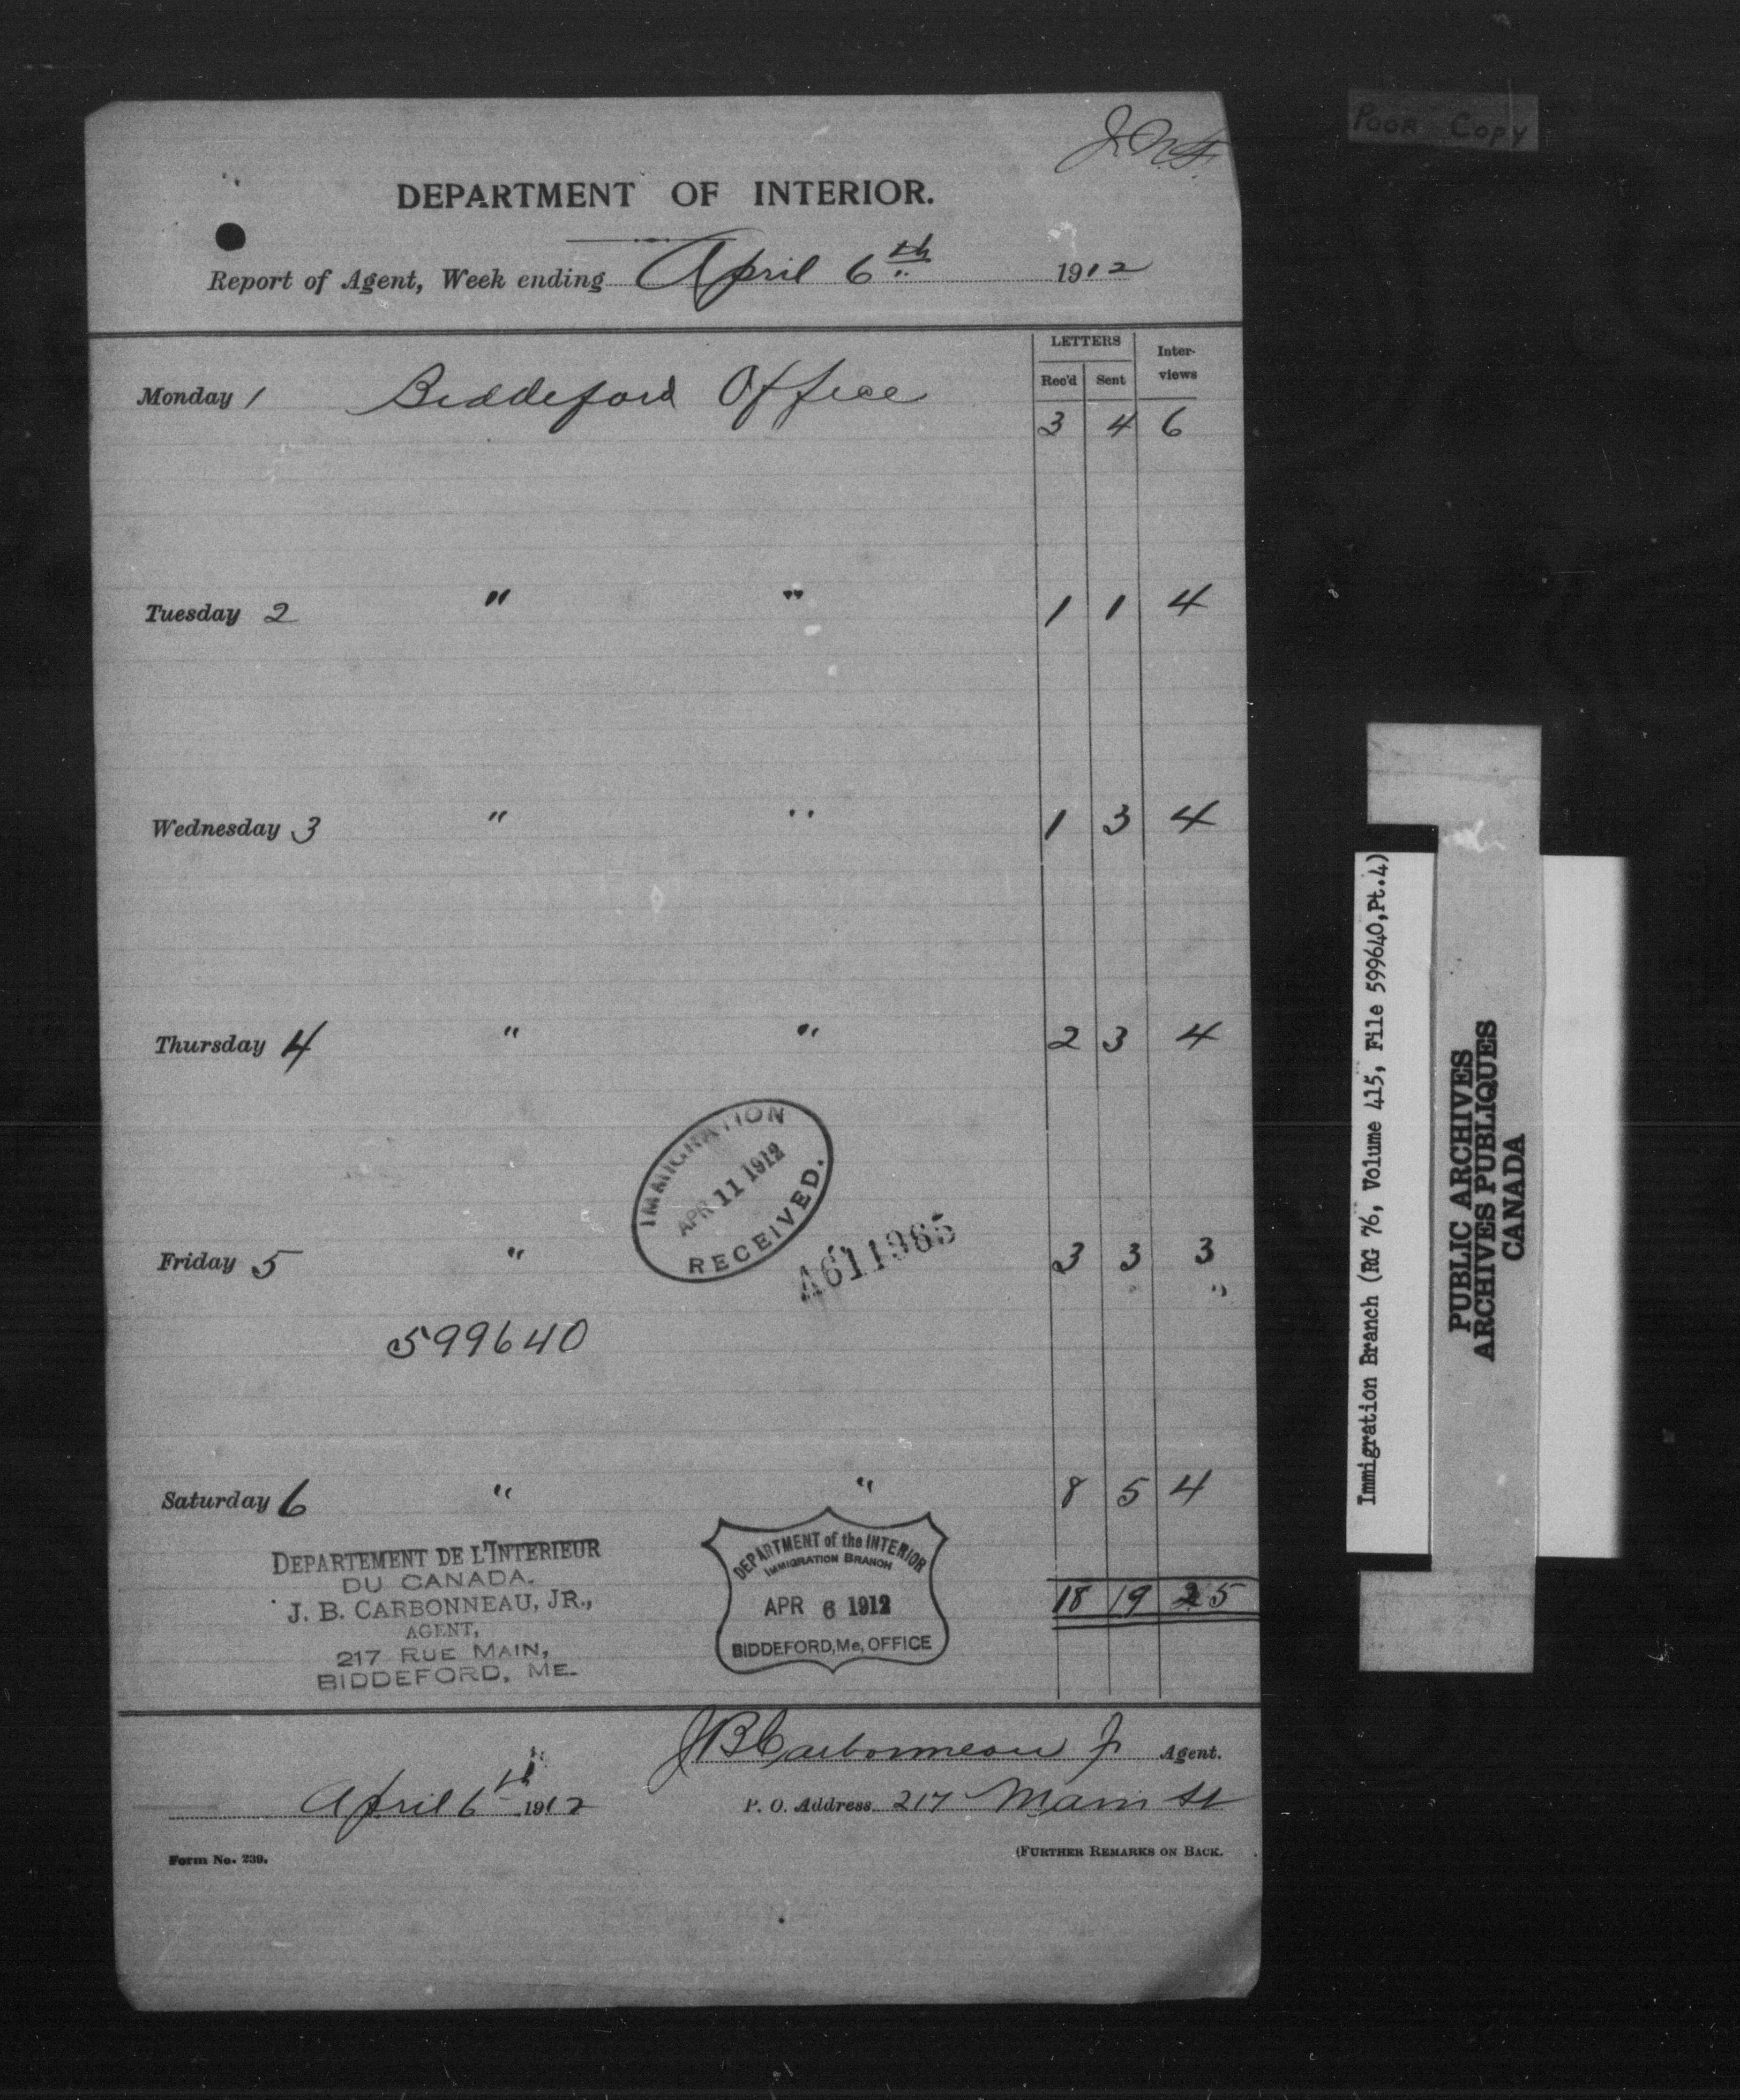 POOR COPY
DEPARTMENT OF INTERIOR.
Report of Agent, Week ending April 6th 1912
LETTERS Inter-views
Rec'd Sent
Monday 1 Biddeford Office 3 4 6
Tuesday 2 " " 1 1 4
Wednesday 3 " " 1 3 4
Thursday 4 " " 2 3 4
IMMIGRATION
APR 11 1912
RECEIVED.
Friday 5 " 3 3 3
599640
Saturday 6 " " 8 5 4
18 19 25
DEPARTEMENT DE L'INTERIEUR
DU CANADA.
J. B. CARBONNEAU, JR.,
AGENT,
217 RUE MAIN,
BIDDEFORD, ME.
DEPARTMENT of the INTERIOR
IMMIGRATION BRANCH
APR 6 1912
BIDDEFORD, Me, OFFICE
J B Carbonneau Jr Agent.
April 6th 1912
P. O. Address 217 Main St
Form No. 239.
(FURTHER REMARKS ON BACK.
Immigration Branch (RG 76, Volume 415, File 599640,Pt.4)
PUBLIC ARCHIVES
ARCHIVES PUBLIQUES
CANADA